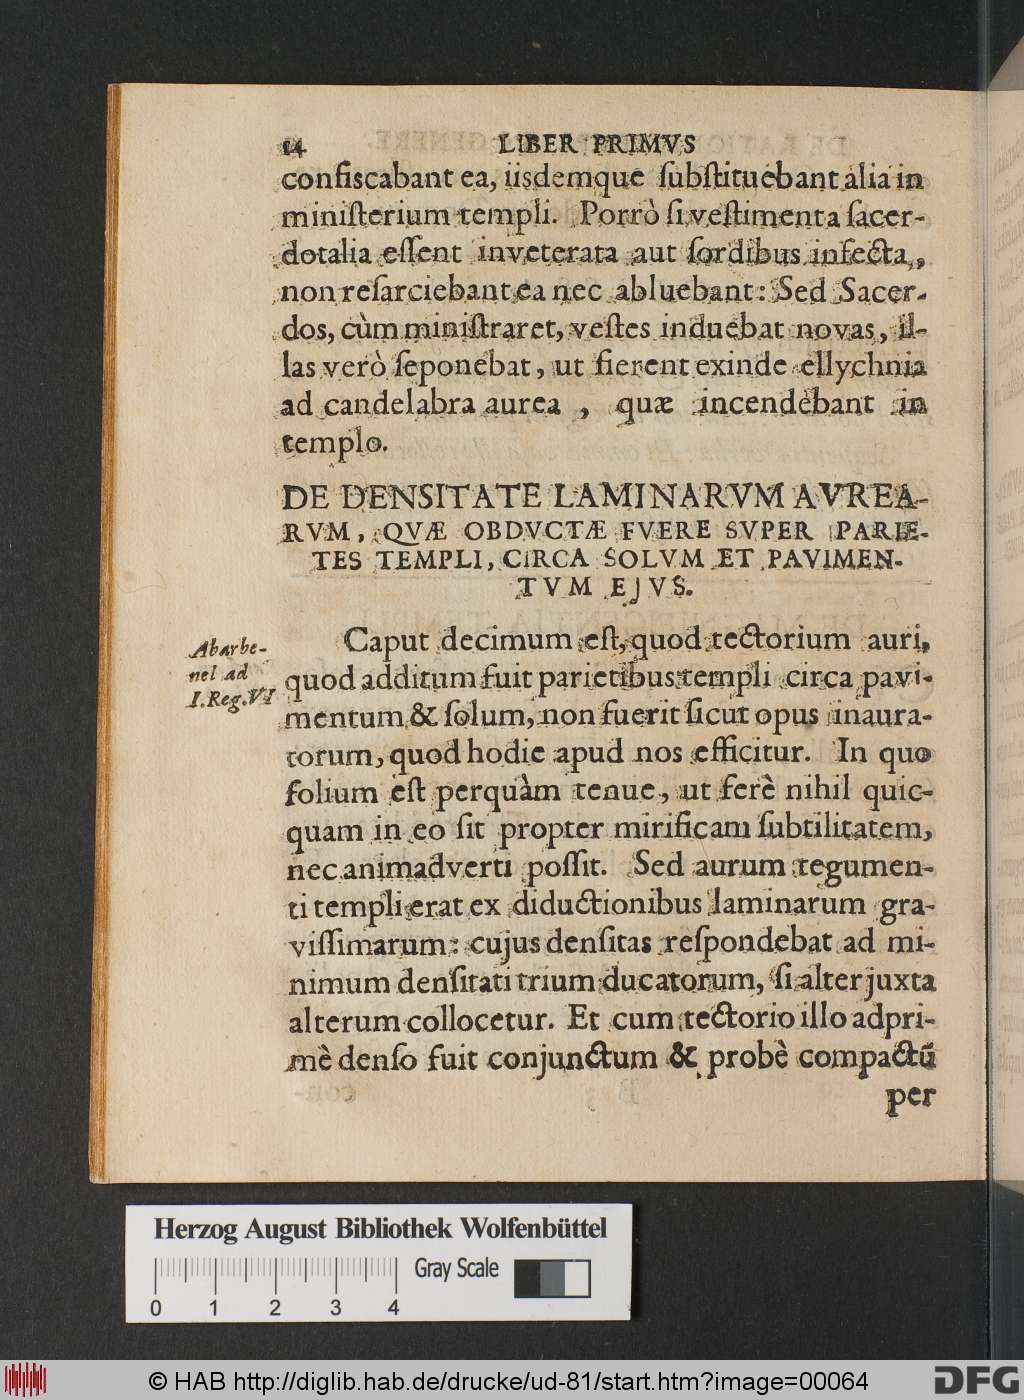 14 LIBER PRIMVS
confiscabant ea, iisdemque ſubſtituebant alia in
miniſterium templi. Porrò ſi veſtimenta ſacer-
dotalia eſſent inveterata aut ſordibus infecta,
non reſarciebant ea nec abluebant: Sed Sacer-
dos, cùm miniſtraret, veſtes induebat novas, il-
las verò ſeponebat, ut fierent exinde ellychnia
ad candelabra aurea, quæ incendebant in
templo.
DE DENSITATE LAMINARVM AVREA-
RVM, QVÆ OBDVCTÆ FVERE SVPER PARIE-
TES TEMPLI, CIRCA SOLVM ET PAVIMEN-
TVM EJVS.
Abarbe-
nel ad
I. Reg. VI
Caput decimum eſt, quod tectorium auri,
quod additum fuit parietibus templi circa pavi-
mentum & ſolum, non fuerit ſicut opus inaura-
torum, quod hodie apud nos efficitur. In quo
folium eſt perquàm tenue, ut ferè nihil quic-
quam in eo ſit propter mirificam ſubtilitatem,
nec animadverti poſſit. Sed aurum tegumen-
ti templi erat ex diductionibus laminarum gra-
viſſimarum: cujus denſitas reſpondebat ad mi-
nimum denſitati trium ducatorum, ſi alter juxta
alterum collocetur. Et cum tectorio illo adpri-
mè denſo fuit conjunctum & probè compactũ
per
Herzog August Bibliothek Wolfenbüttel
Gray Scale
0 1 2 3 4
© HAB http://diglib.hab.de/drucke/ud-81/start.htm?image=00064
DFG